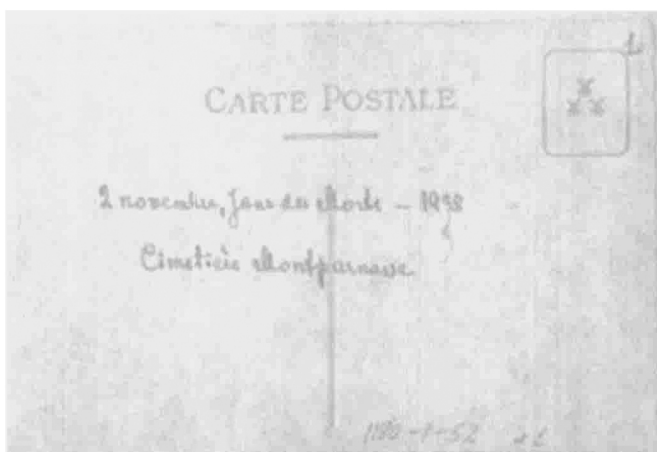 CARTE POSTALE
2 novembre, Jour des Morts – 1938
Cimetière Montparnasse